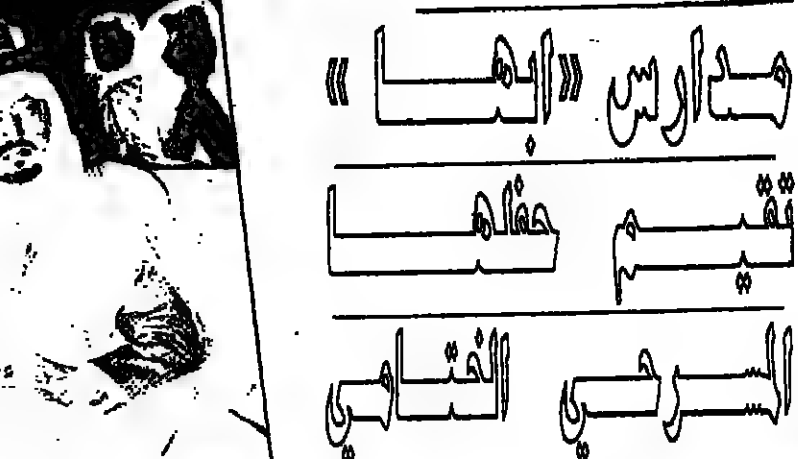 مدارس «ابها»
تقيم حفلها
المسرحي الختامي